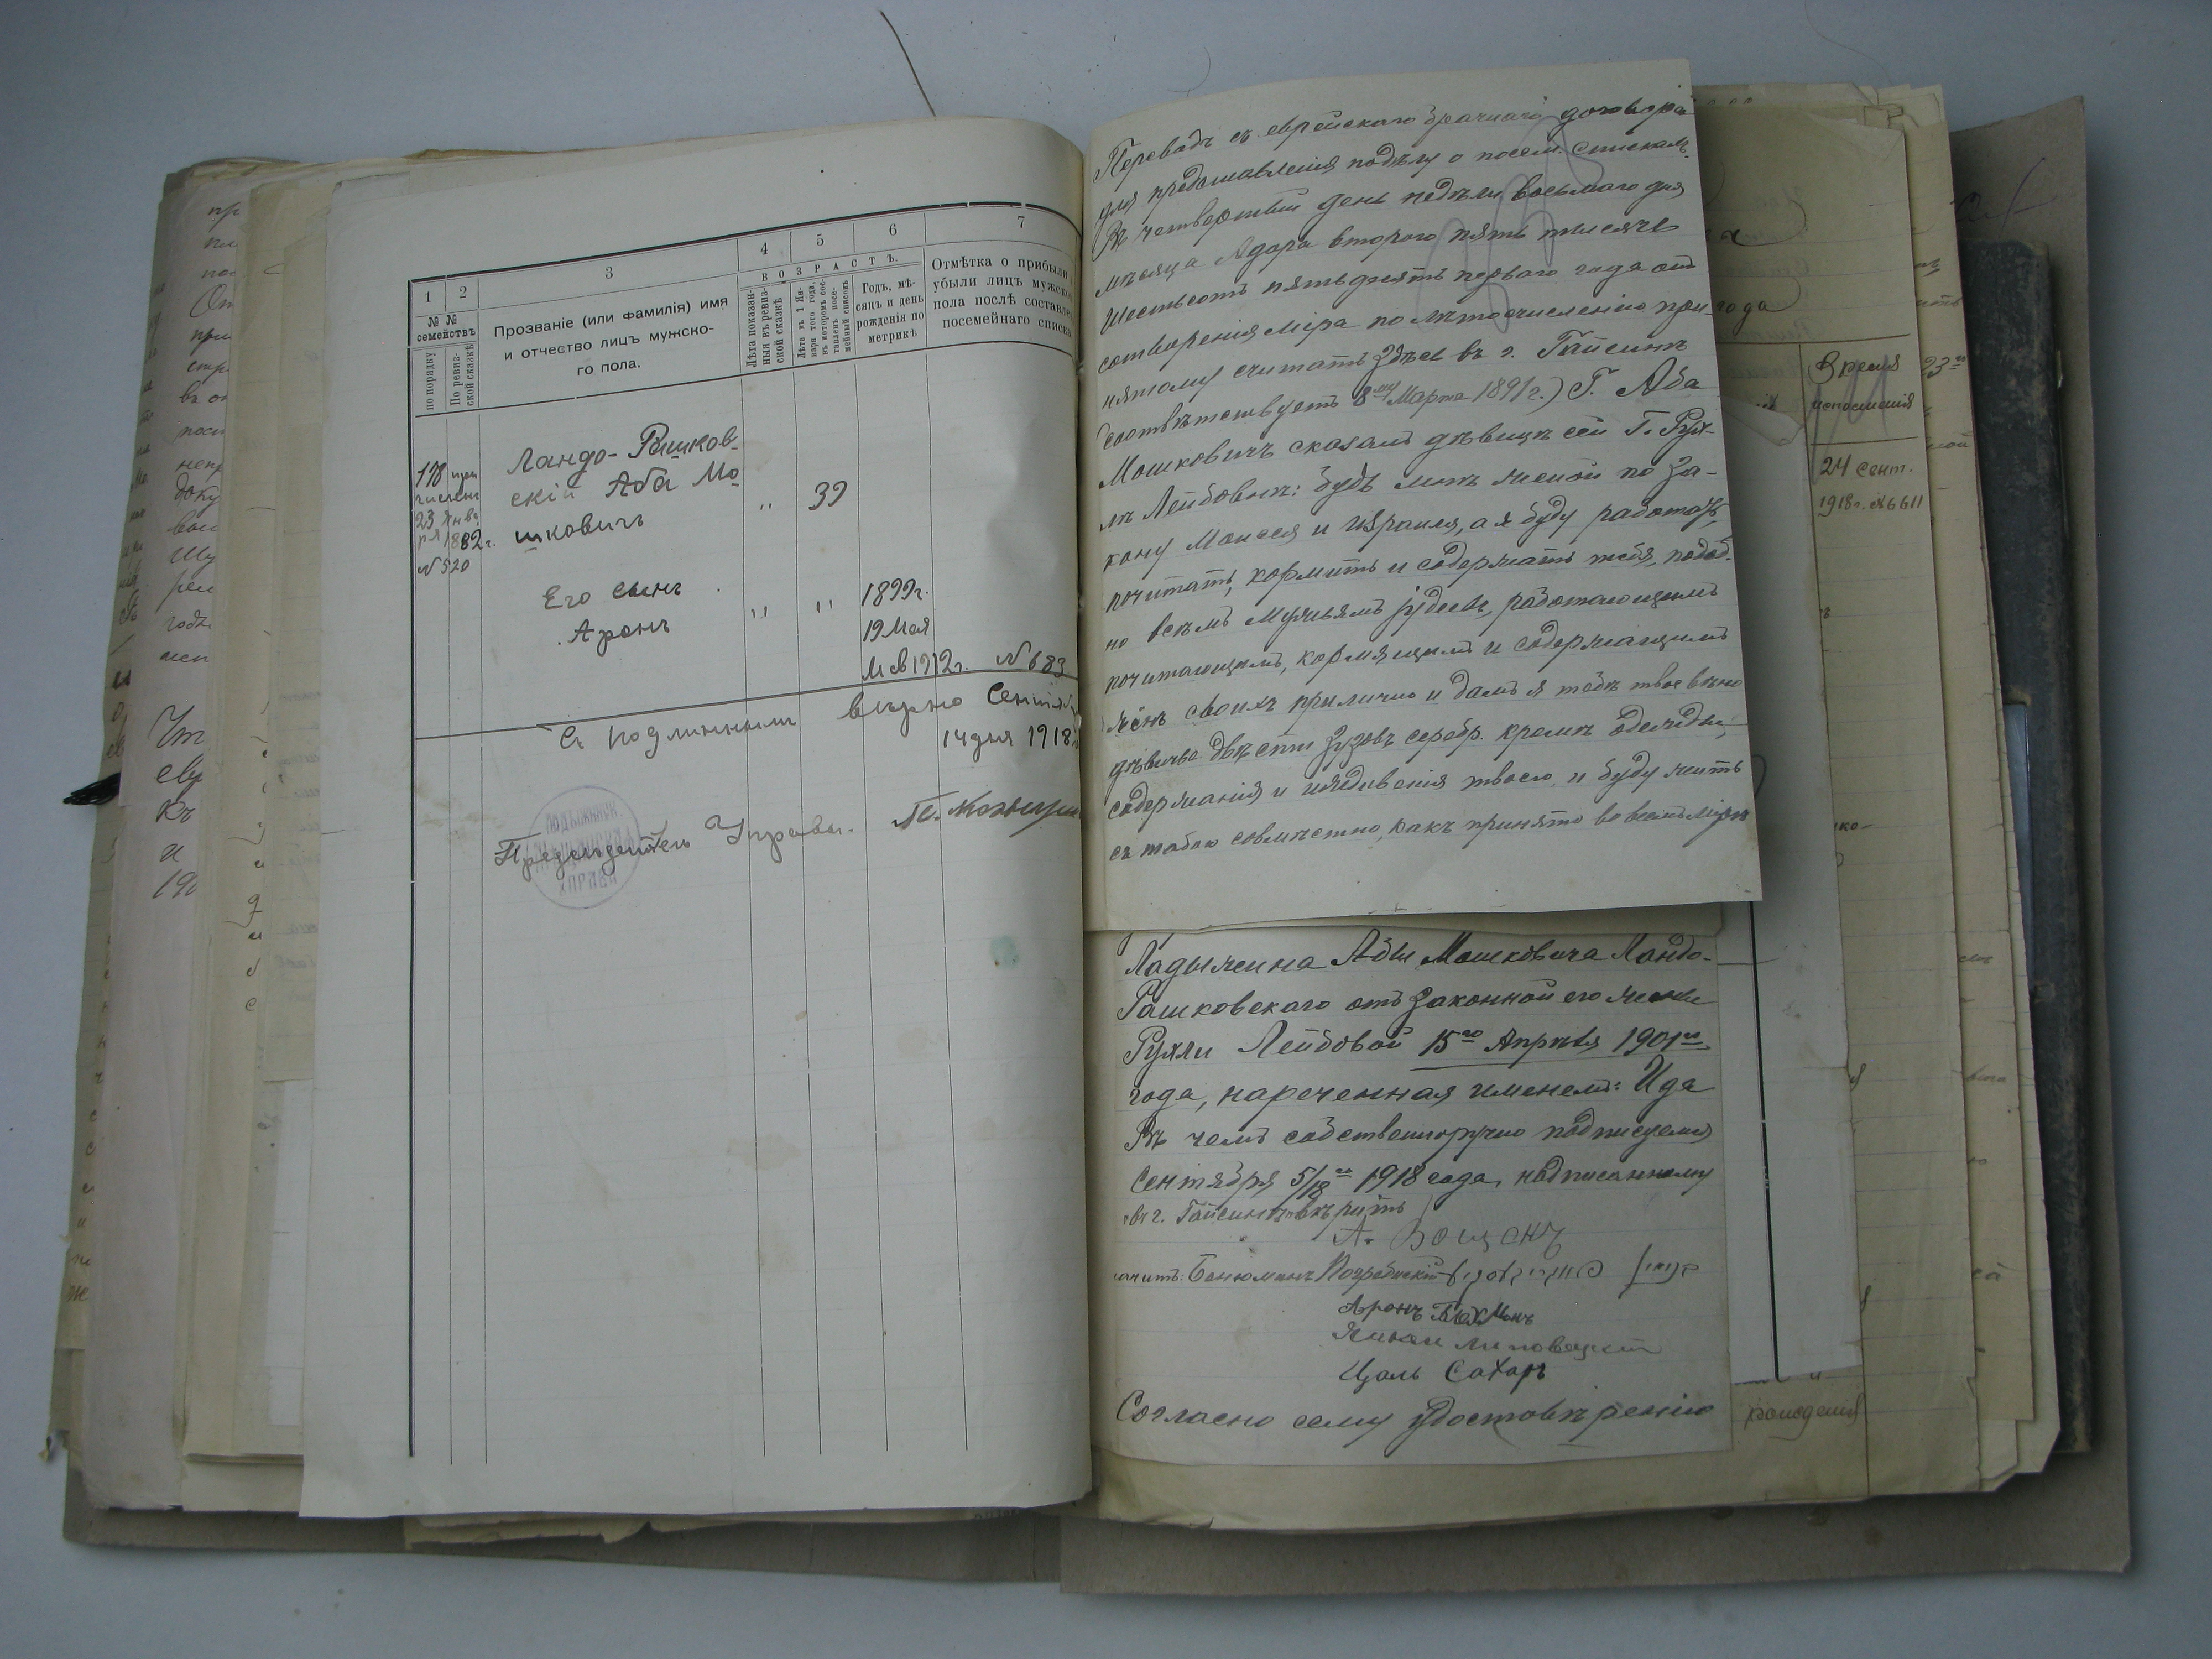 1
2
3
4
5
6
7
№ №
семействъ
по порядку
По ревиз-
ской сказкѣ
Прозваніе (или фамилія) имя
и отчество лицъ мужско-
го пола.
ВОЗРАСТЪ.
Лѣта показан-
ныя въ ревиз-
ской сказкѣ
Лѣта къ 1 Ян-
варя того года,
въ которомъ сос-
тавленъ посе-
мейный списокъ
Годъ, мѣ-
сяцъ и день
рожденія по
метрикѣ
Отмѣтка о прибыли
убыли лицъ мужско
пола послѣ составле
посемейнаго списка
178 при
числен
23 Янва
ря 1882 г.
№ 520
Ландо-Рашков-
скій Аба Мо
шковичъ
"
39
Его сынъ
Аронъ
"
"
1899г.
19 Мая
1912г. № 683
Съ подлиннымъ вѣрно Сентяб
14 дня 1918
Предсѣдатель Управы.
УПРАВА
Переводъ съ еврейскаго брачнаго договора
для представленія къ дѣлу о посем. спискахъ.
Въ четвертый день недѣли восьмаго дня
мѣсяца Адора второго пять тысячъ
шестьсотъ пятьдесятъ перваго года отъ
сотворенія міра по лѣтосчисленію при-
нятому считать здѣсь въ г. Гайсинѣ
соотвѣтствуетъ 8му Марта 1891 г.) Г. Аба
Мошковичъ сказалъ дѣвицѣ сей Г. Рух-
лѣ Лейбовнѣ: будь мнѣ женой по за-
кону Моисея и Израиля, а я буду работать,
почитать, кормить и содержать тебя, подоб-
но всѣмъ мужьямъ іудеевъ, работающимъ
почитающимъ, кормящимъ и содержащимъ
жёнъ своихъ прилично и дамъ я тебѣ твое вѣно
дѣвичье двѣсти зузовъ серебр. кромѣ одежды,
содержанія и издивенія твоего, и буду жить
съ тобою совмѣстно, какъ принято во всемъ мірѣ
года
Время
исполненія
24 Сент.
1918 г. №6611
23го
Ладыжина Абы Мошковича Ландо-
Рашковскаго отъ законной его жены
Рухли Лейбовой 15го Апрѣля 1901го
года, нареченная именемъ: Ида
Въ чемъ собственноручно подписуемся
Сентября 5/18го 1918 года, надписанному
"въ г. Гайсинѣ" вѣрить
значитъ: Бенюминъ Погребискій
Аронъ Бюхманъ
Липовецкій
Цаль Сахаръ
Согласно сему удостовѣренію
рожденія